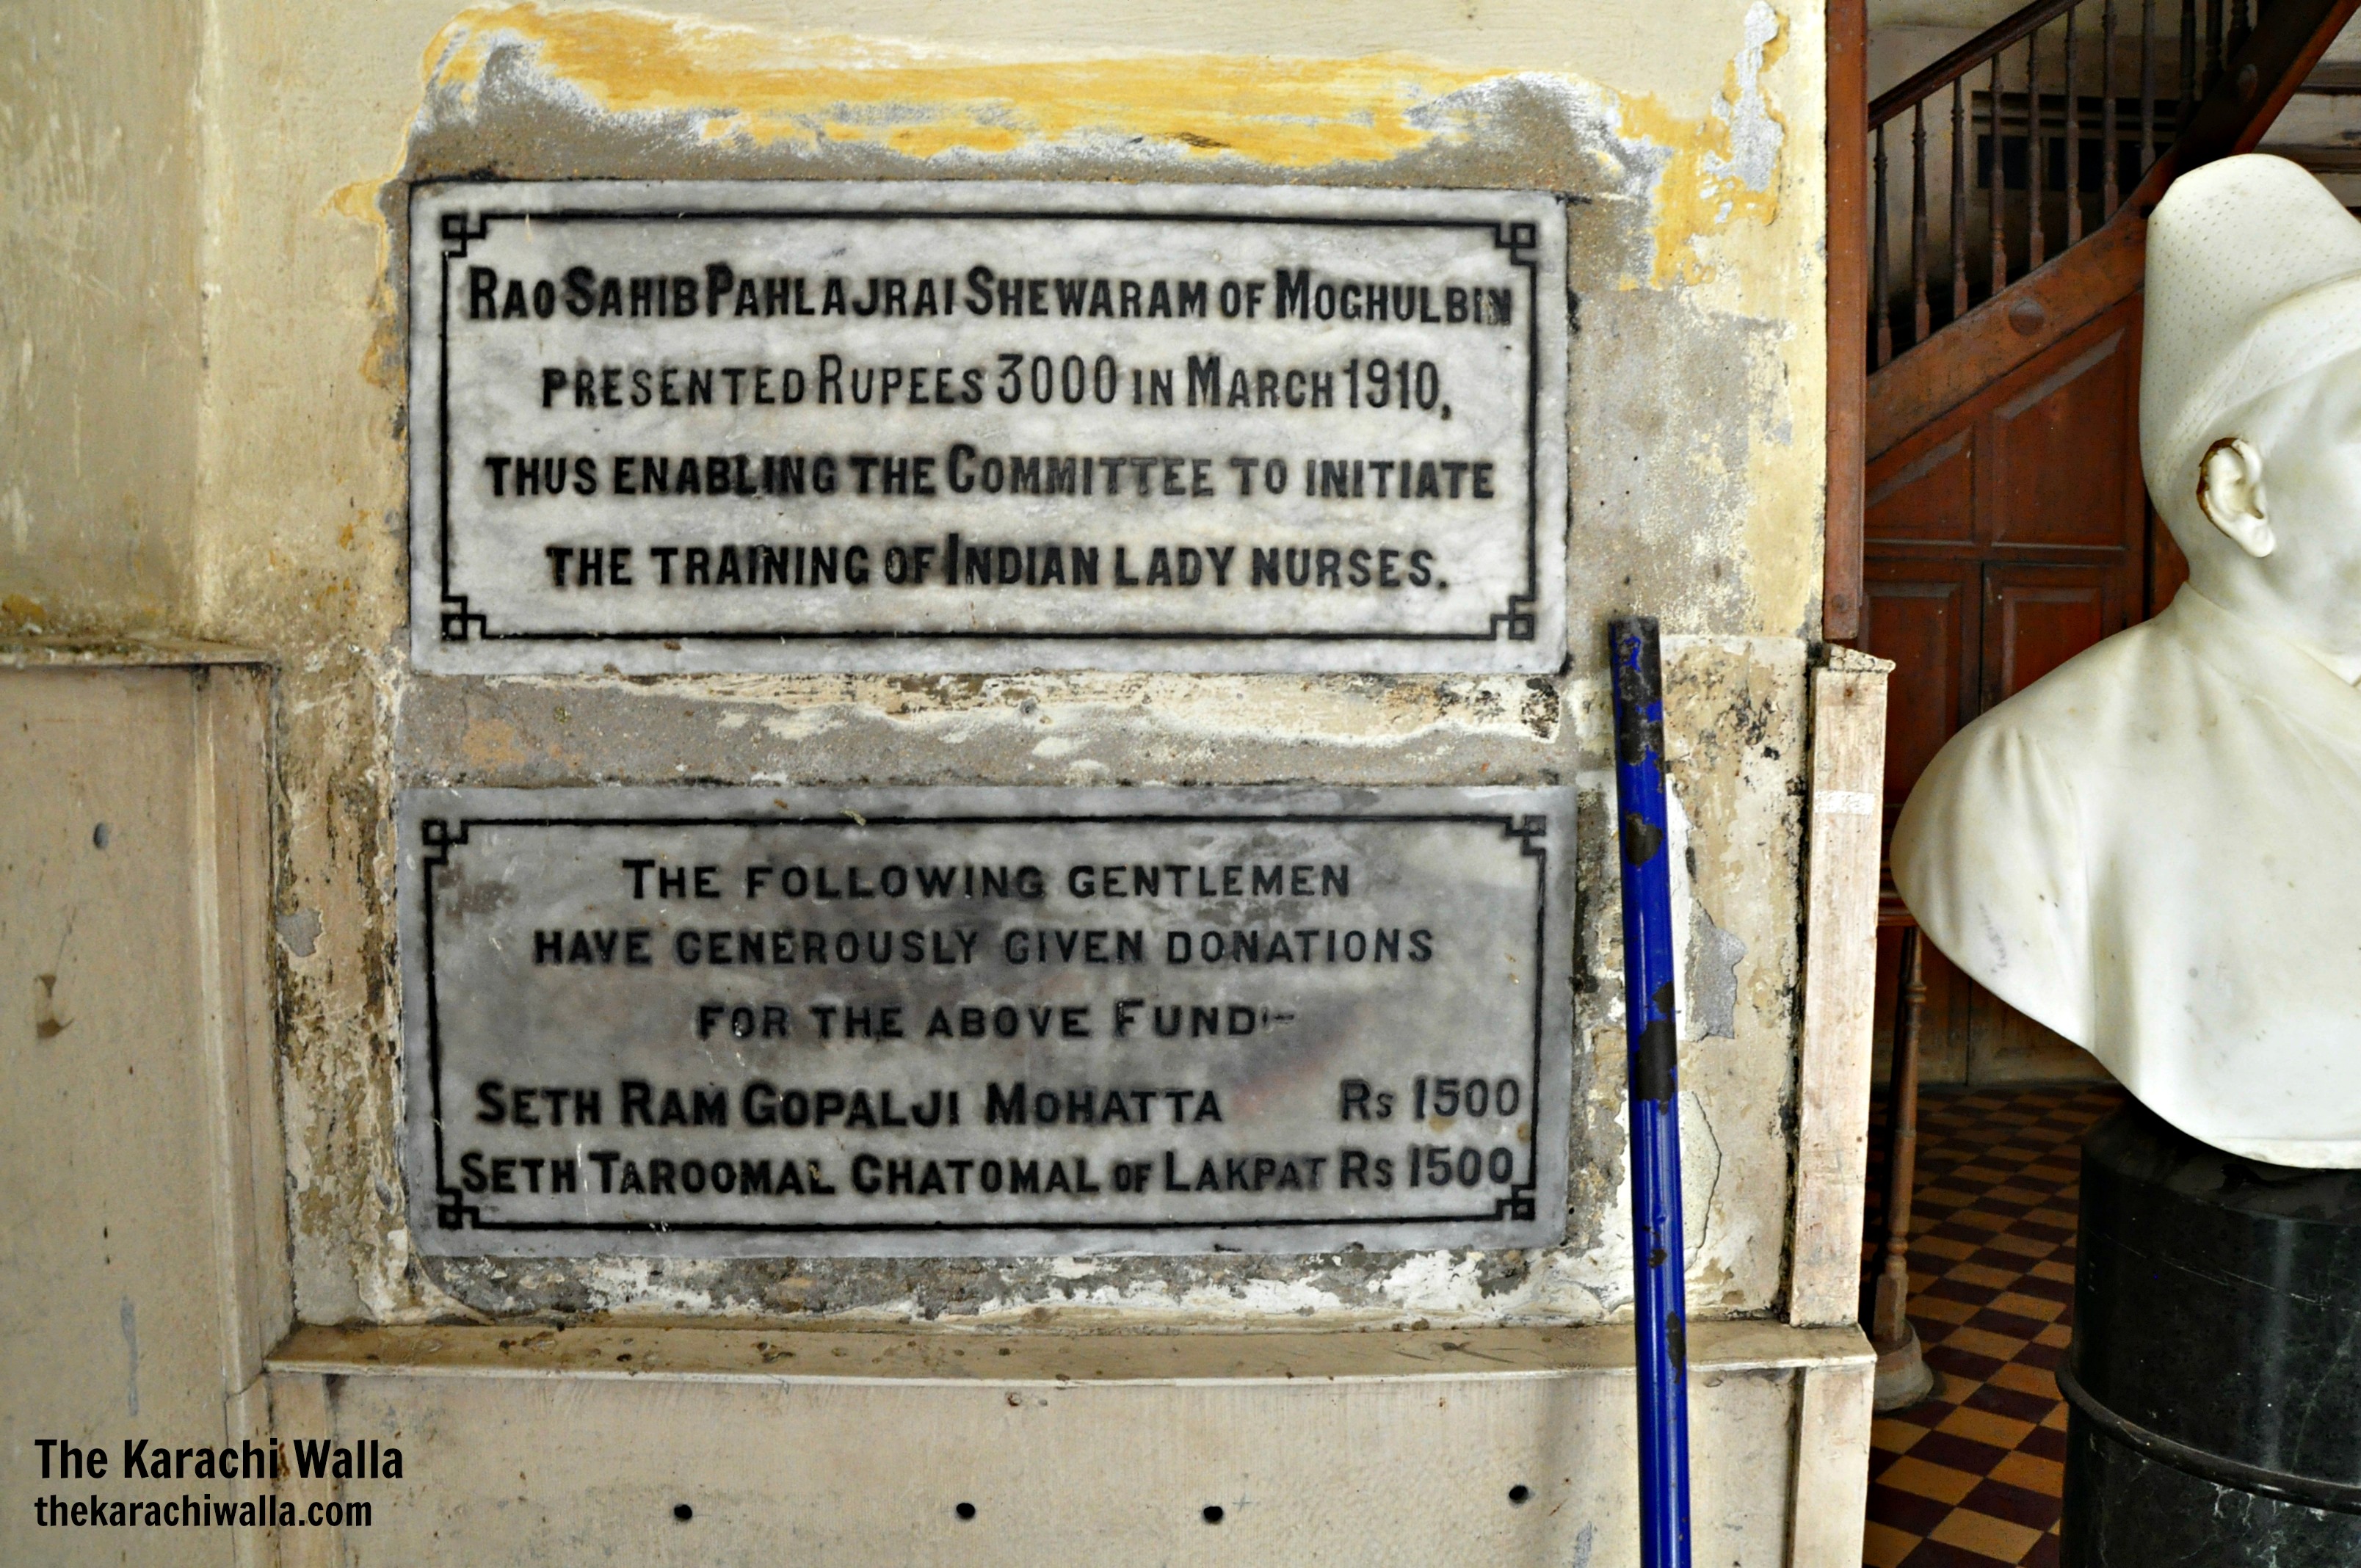 RAO SAHIB PAHLAJRAI SHEWARAM OF MOGHULBIN
PRESENTED RUPEES 3000 IN MARCH 1910,
THUS ENABLING THE COMMITTEE TO INITIATE
THE TRAINING OF INDIAN LADY NURSES.
THE FOLLOWING GENTLEMEN
HAVE GENEROUSLY GIVEN DONATIONS
FOR THE ABOVE FUND:-
SETH RAM GOPALJI MOHATTA RS 1500
SETH TAROOMAL CHATOMAL OF LAKPAT RS 1500
The Karachi Walla
thekarachiwalla.com